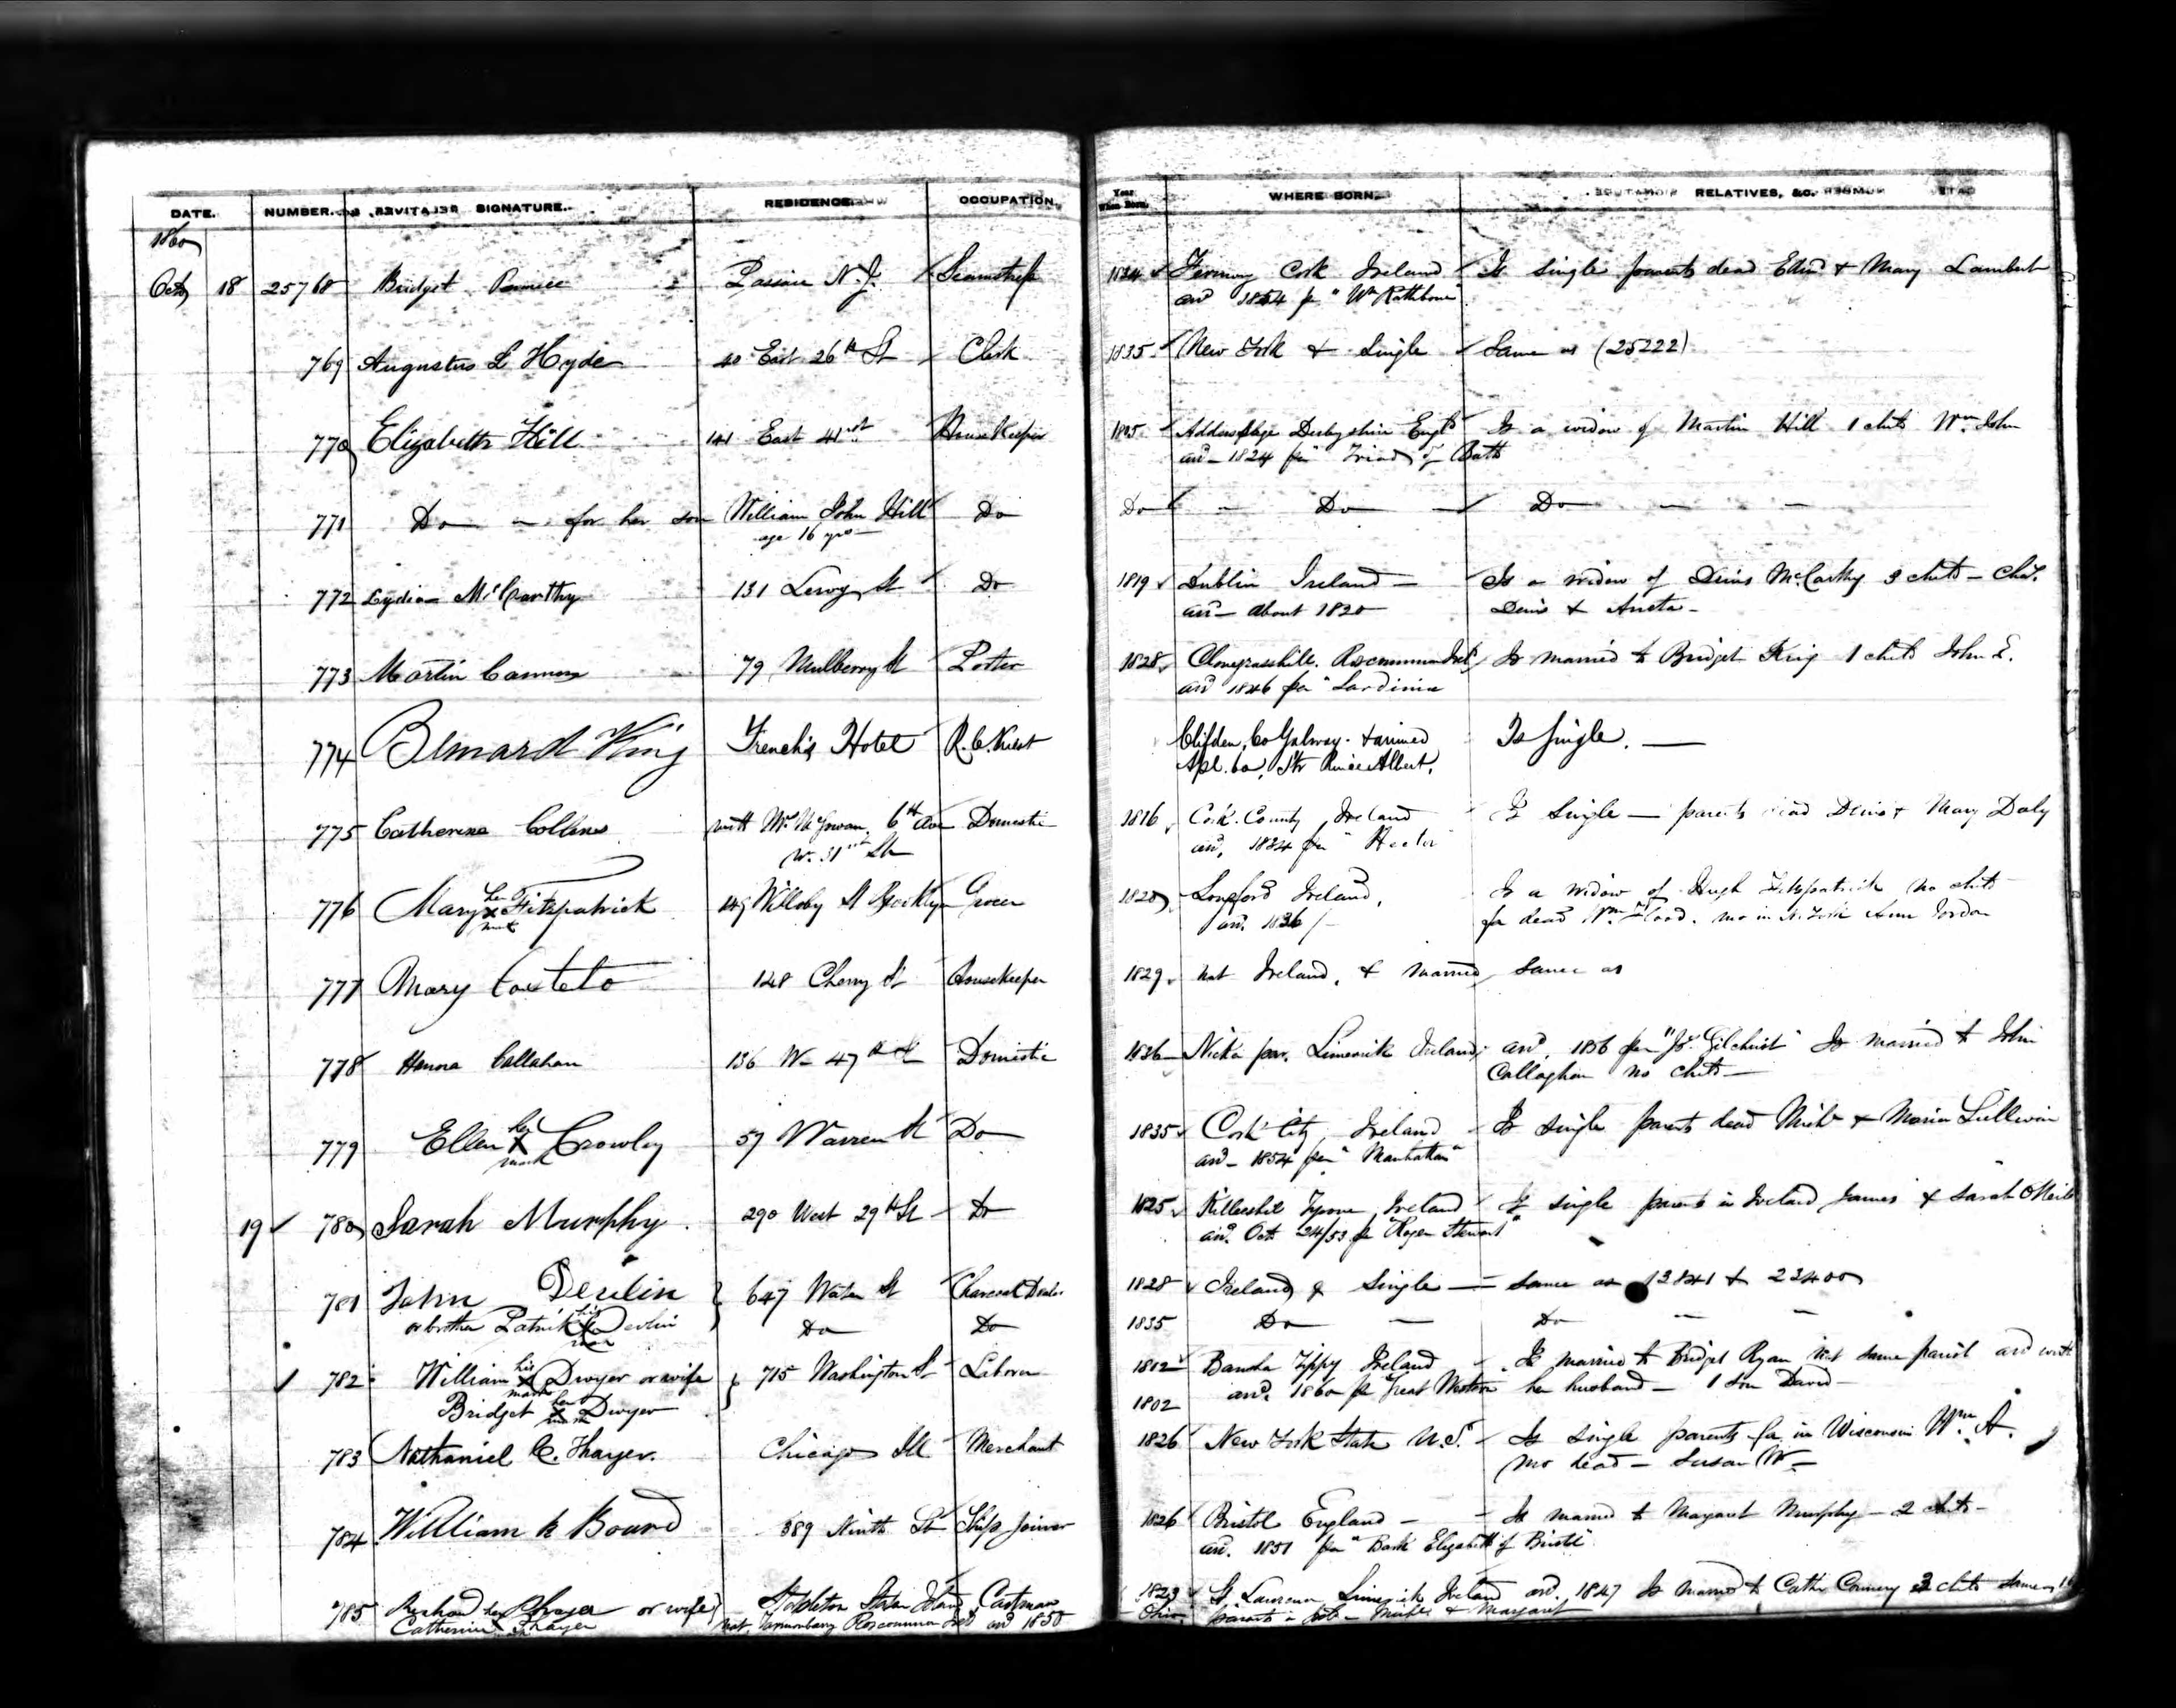 DATE. NUMBER. SIGNATURE. RESIDENCE. OCCUPATION. Year When Born. WHERE BORN. RELATIVES, &C.
1860
Oct 18 25768 Bridget Passaic N.J. Seamstress 1824 Fermoy Cork Ireland Is single parents dead Edwd & Mary Lambert
arrd 1854 per "Wm Rathbone"
769 Augustus L Hyde 40 East 26th St Clerk 1835 New York & Single Same as (25222)
770 Elizabeth Hill 141 East 41st Housekeeper 1805 Derbyshire Engd Is a widow of Martin Hill 1 child Wm John
arrd 1824 per of Bath
771 Do for her son William John Hill Do Do Do Do
age 16 yrs
772 Lydia McCarthy 131 Leroy St Do 1819 Dublin Ireland Is a widow of Denis McCarthy 3 chds Chas.
arrd about 1820 Denis &
773 Martin Cannon 79 Mulberry St Porter 1828 Roscommon Ireld Is married to Bridget King 1 child John E.
arrd 1846 per "Sardinia
774 Bernard King French's Hotel R.C. Priest Clifden, Co Galway. & arrived Is Single.
Apl. 60, Str Prince Albert.
775 Catherine Collins with Mrs McGowan, 6th Ave Domestic 1816 Cork County, Ireland Is Single parents dead Denis & Mary Daly
W. 31st St arrd, 1834 per "Hector
776 Mary her x mark Fitzpatrick 149 Willoby St Brooklyn Grocer 1820 Longford Ireland. Is a widow of Hugh Fitzpatrick no chds
arr. 1836 fa dead Wm Flood. mo in N. York Ann Jordan
777 Mary Costelo 148 Cherry St Housekeeper 1829 nat Ireland, & married Same as
778 Hanora Callahan 136 W 47th St Domestic 1836 par. Limerick Ireland, arrd. 1856 per "Js. Gilchrist" Is married to John
Callaghan no chds
779 Ellen her X mark Crowley 57 Warren St Do 1835 Cork City, Ireland Is single parents dead Michl & Maria Sullivan
arrd 1854 per "Manhattan"
19 780 Sarah Murphy. 290 West 29th St Do 1825 Tyrone, Ireland Is single parents in Ireland James & Sarah O'Neill
arrd. Oct 24/53 per Roger Stewart"
781 John Devlin 647 Water St Charcoal Dealer 1828 Ireland & Single same as 12841 & 22400
or brother Patrick his X mark Devlin Do Do 1835 Do Do
782 William his X mark Dwyer or wife 715 Washington St Laborer 1812 Bansha Tippy Ireland Is married to Bridget Ryan, nat same parish arrd with
Bridget her X mark Dwyer 1802 arrd. 1860 per Great Western her husband 1 son David
783 Nathaniel C. Thayer. Chicago Ill Merchant 1826 New York State U.S. Is Single parents fa in Wisconsin Wm. A.
mo dead Susan W.
784 William K Bound 389 Ninth St Ship Joiner 1826 Bristol England Is married to Margaret Murphy 2 chds
arrd. 1851 per "Bark Elizabeth of Bristol"
785 or wife Stapleton Staten Island Cartman 1823 St. Laurence Limerick Ireland arrd, 1847 Is married to Cathe 2 chds James
Catherine nat. Roscommon Ireld arrd 1850 parents in & Margaret